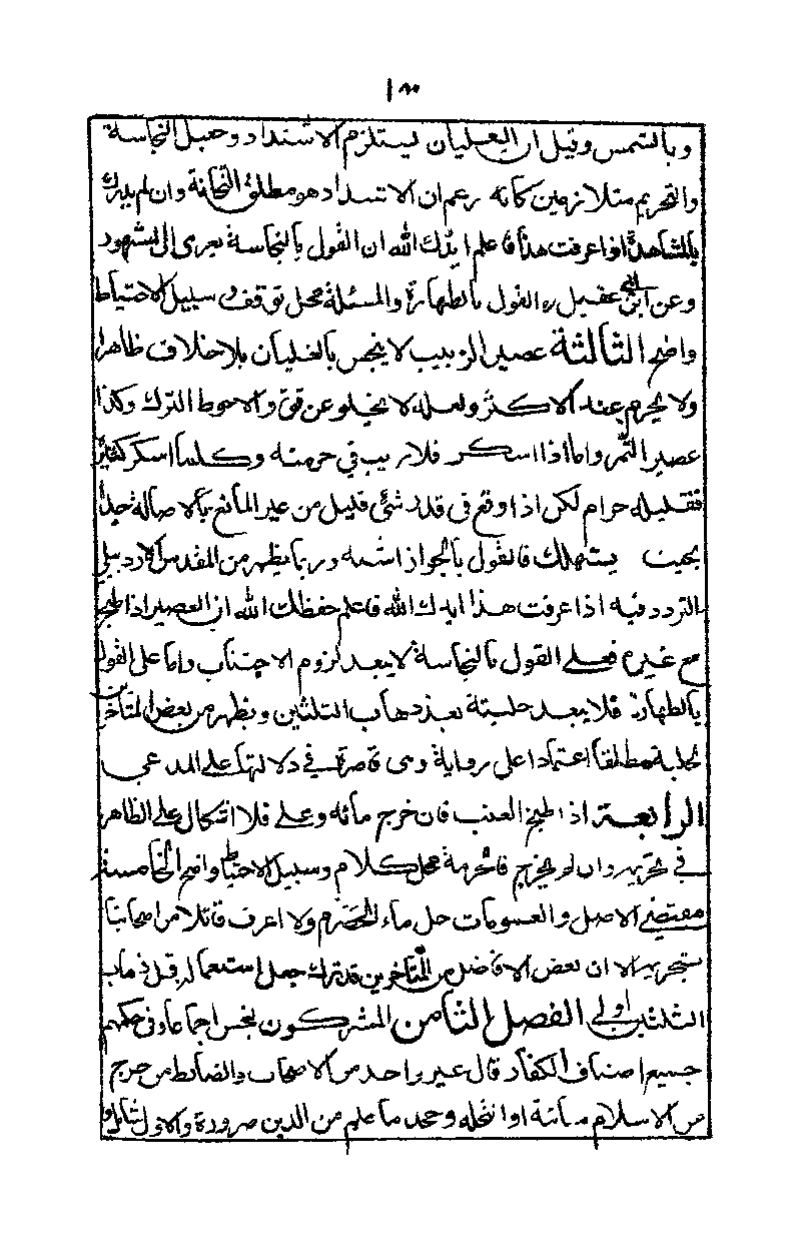 ١٨٥
وبالشمس وقيل ان الغليان يستلزم الاشتداد وجعل النجاسة
والتحريم متلازمين كانه زعم ان الاشتداد هو مطلق الثخانة وان لم يدرك
بالمشاهدة اذا عرفت هذا فاعلم ايدك الله ان القول بالنجاسة يعزى الى المشهور
وعن ابن ابي عقيل ره القول بالطهارة والمسئلة محل توقف وسبيل الاحتياط
واضح الثالثة عصير الزبيب لا ينجس بالغليان بلا خلاف ظاهرا
ولا يحرم عند الاكثر ولعله لا يخلو عن قوة والاحوط الترك وكذا
عصير التمر واما اذا اسكر فلا ريب في حرمته وكلما اسكر كثيره
فقليله حرام لكن اذا وقع في قدر شئ قليل من غير المائع بالاصالة جدا
بحيث يستهلك فالقول بالجواز اشبه وربما يظهر من المقدس الاردبيلي
التردد فيه اذا عرفت هذا ايدك الله فاعلم حفظك الله ان العصير اذا طبخ
مع غيره فعلى القول بالنجاسة لا يبعد لزوم الاجتناب واما على القول
بالطهارة فلا يبعد حليته بعد ذهاب الثلثين ويظهر من بعض المتاخرين
حليه مطلقا اعتمادا على رواية وهى قاصرة في دلالتها على المدعى
الرابعة اذا طبخ العنب فان خرج مائه وغلى فلا اشكال على الظاهر
في تحريمه وان لم يخرج فالحرمة محل كلام وسبيل الاحتياط واضح الخامسة
مقتضى الاصل والعمومات حل ماء الحصرم ولا اعرف قائلا من اصحابنا
بتحريمه الا ان بعض الافاضل من المتاخرين قد ترك جعل استعماله قبل ذهاب
الثلثين اولى الفصل الثامن المشركون نجس اجماعا وفى حكمهم
جميع اصناف الكفار قال غير واحد من الاصحاب والضابط من خرج
من الاسلام مباينة او انتحله وجحد ما علم من الدين ضرورة والاول شامل